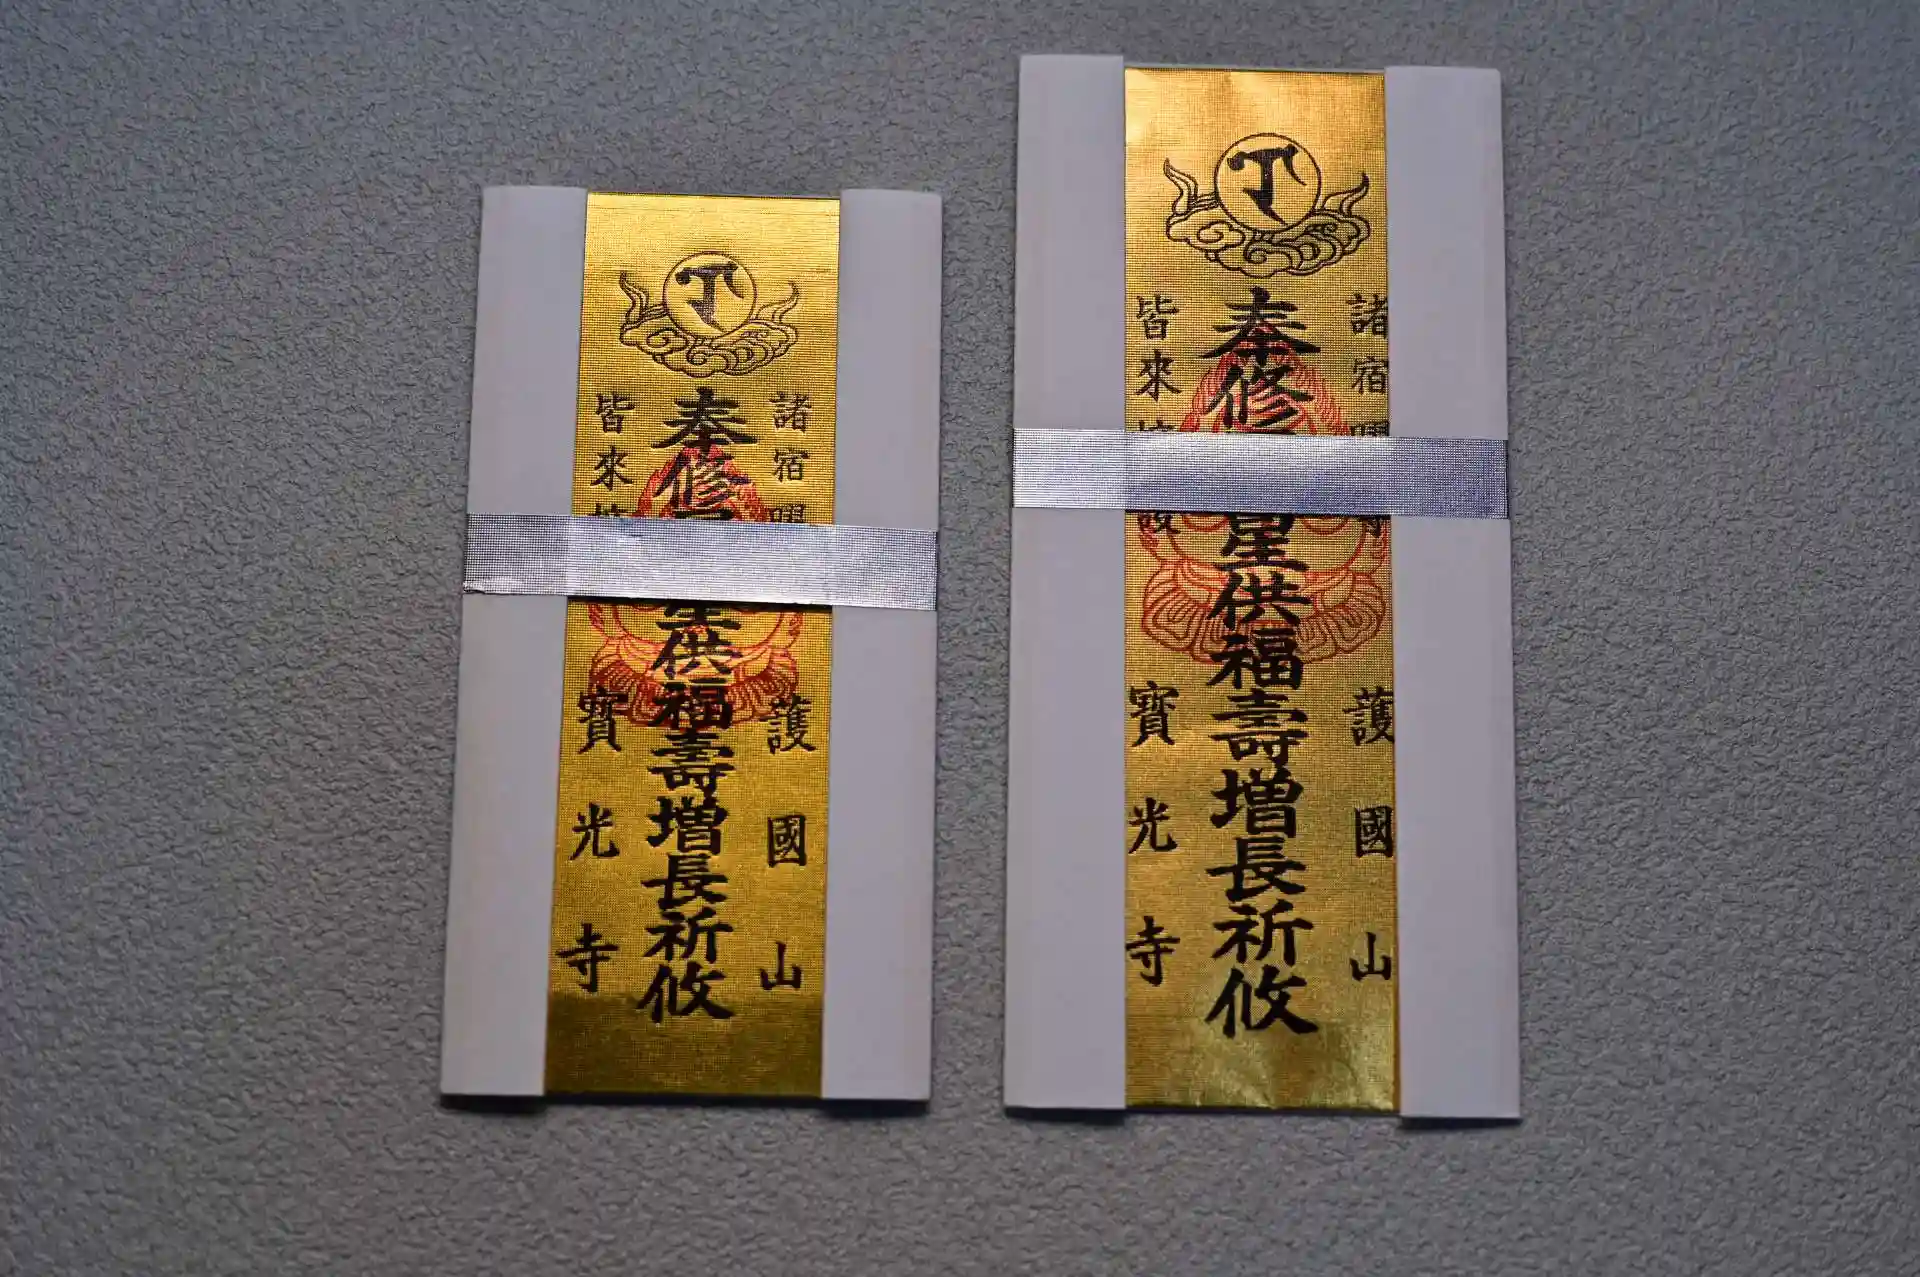 諸宿
奉修
皆來
星供福壽増長祈攸
護國山
寶光寺
諸宿
奉修
皆來
星供福壽増長祈攸
護國山
寶光寺